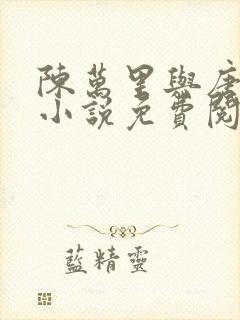 陳萬里與唐
小說免費閱
藍精靈